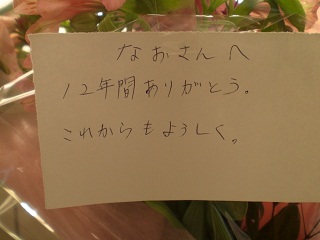 なおさんへ
12年間ありがとう。
これからもよろしく。